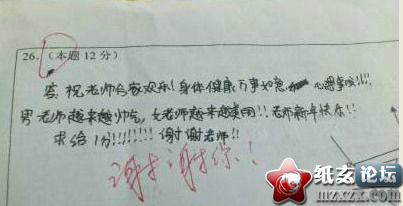 26.(本题12分)
答:祝老师合家欢乐!身体健康万事如意 心想事成!!!!
男老师越来越帅气,女老师越来越美丽!!老师新年快乐!!
求给1分!!!!!!!!谢谢老师!!
谢谢你!!
纸友论坛
mzxzx.com